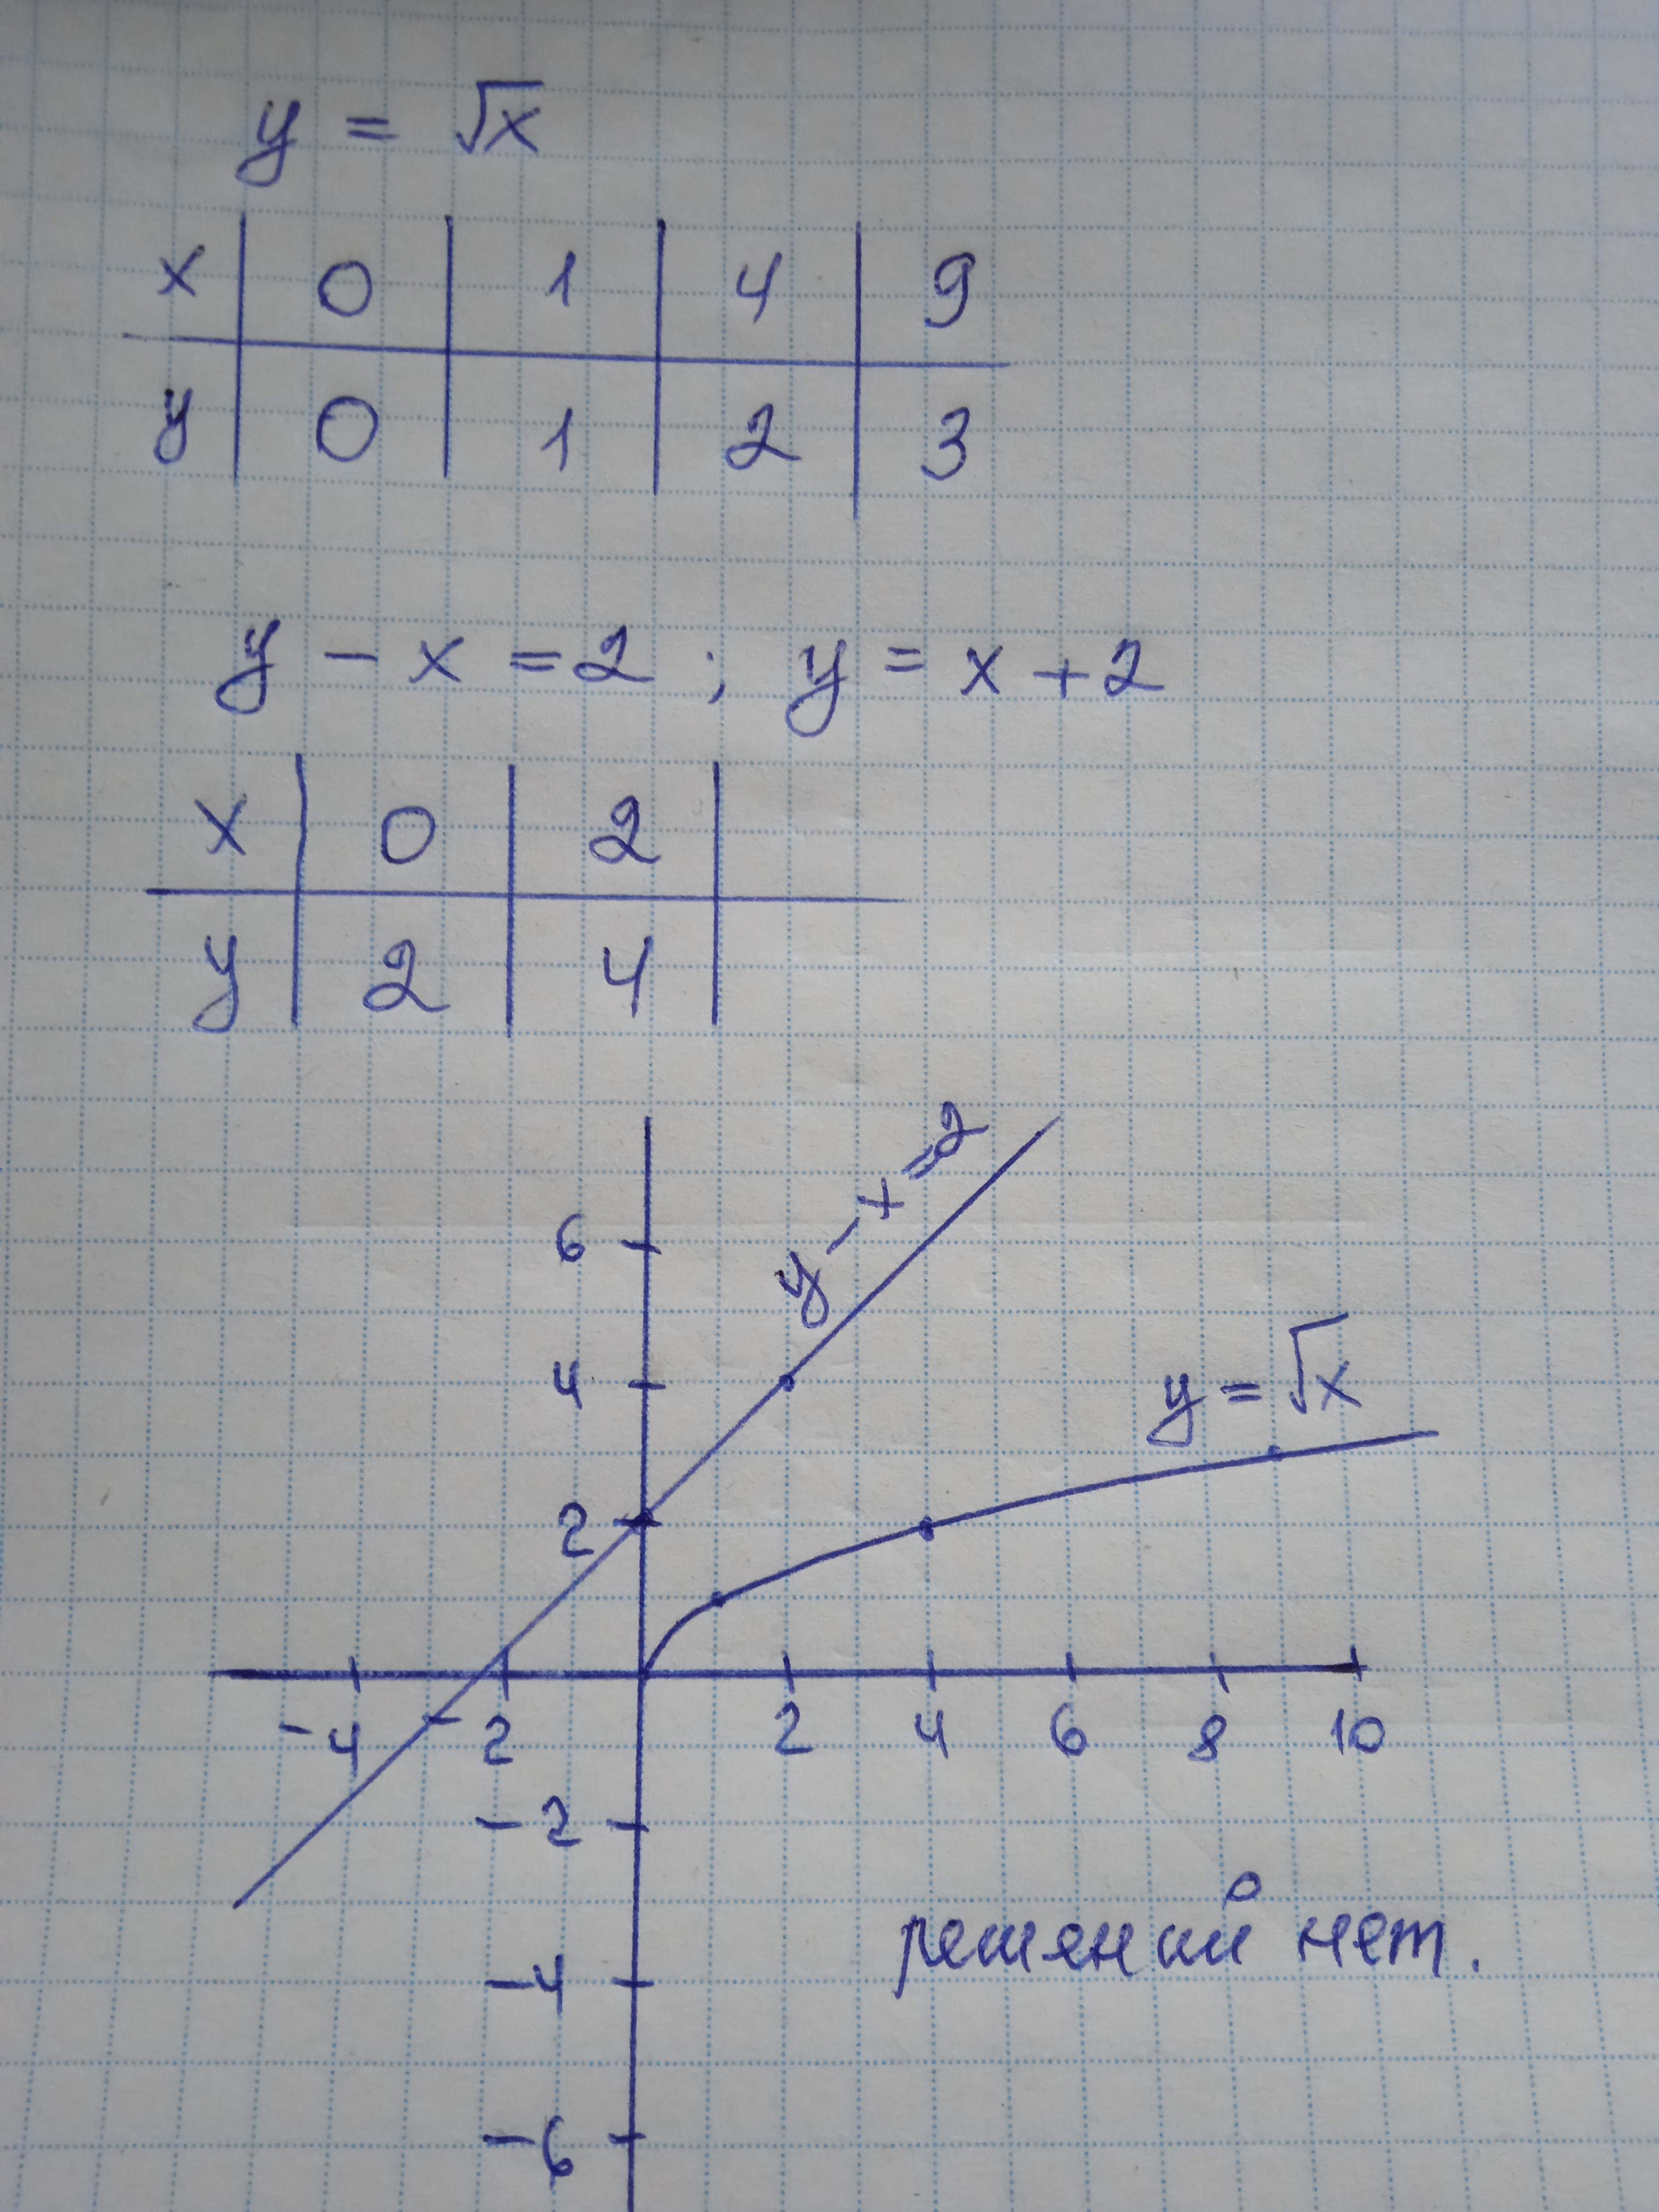 y = √x
x 0 1 4 9
y 0 1 2 3
y - x = 2 ; y = x + 2
x 0 2
y 2 4
y - x = 2
6
4
y = √x
2
-4 -2 2 4 6 8 10
-2
решений нет.
-4
-6